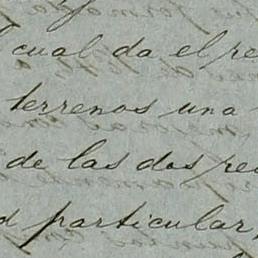 cual da el re
terrenos una
de las dos re
particular,